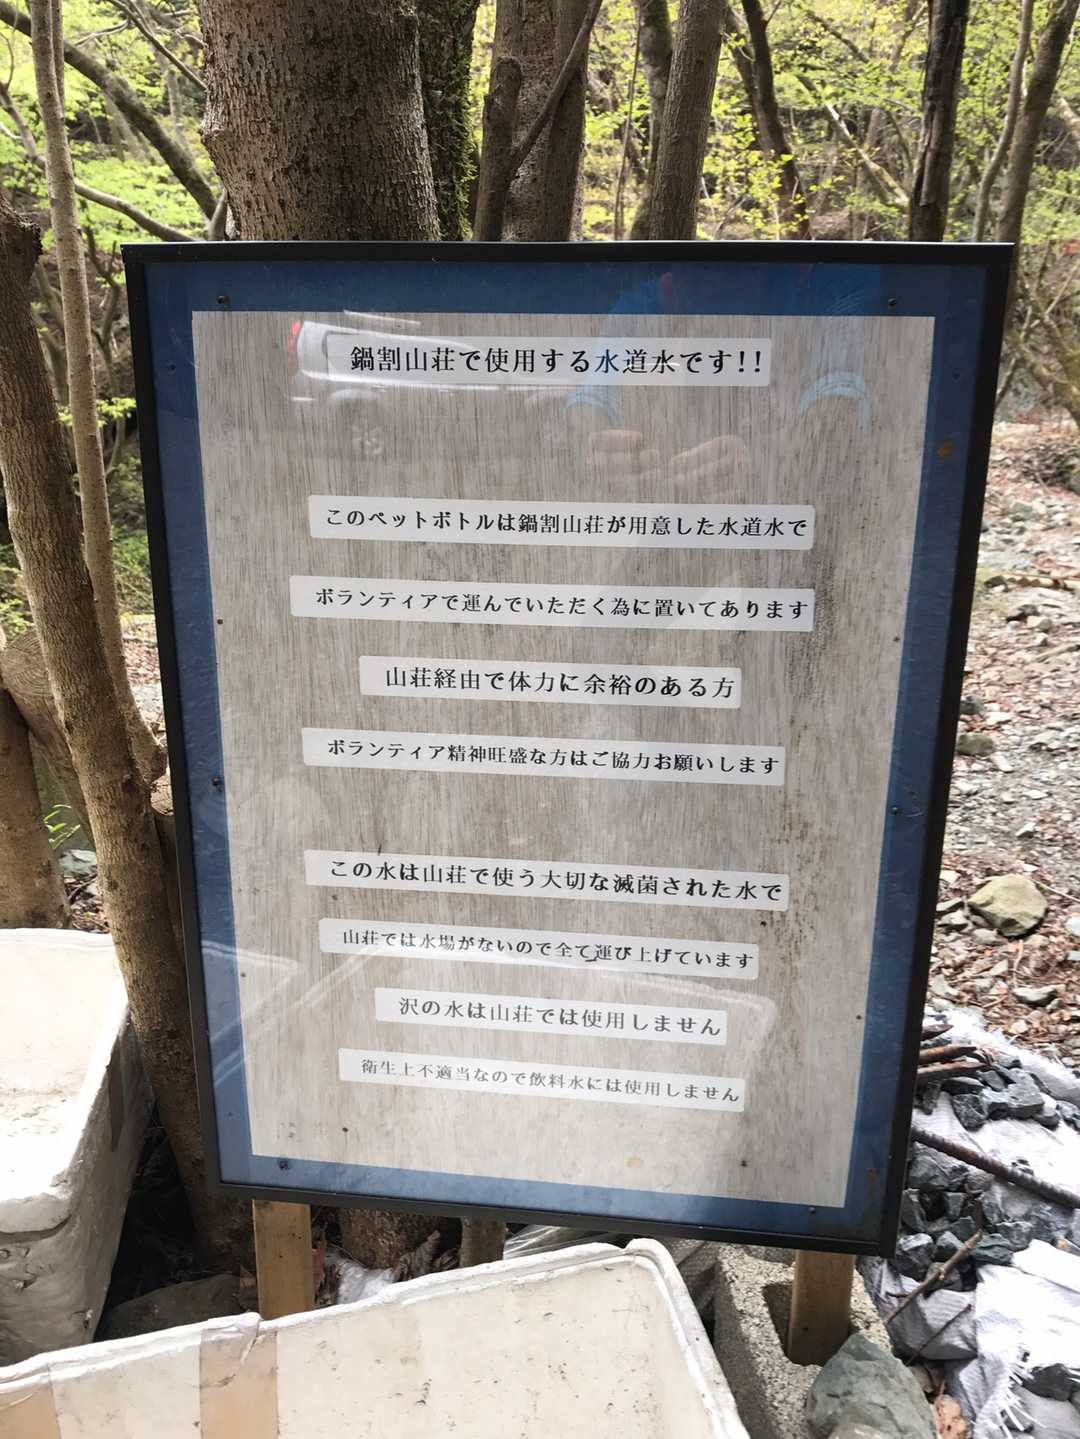 鍋割山荘で使用する水道水です!!
このペットボトルは鍋割山荘が用意した水道水で
ボランティアで運んでいただく為に置いてあります
山荘経由で体力に余裕のある方
ボランティア精神旺盛な方はご協力お願いします
この水は山荘で使う大切な滅菌された水で
山荘では水場がないので全て運び上げています
沢の水は山荘では使用しません
衛生上不適当なので飲料水には使用しません